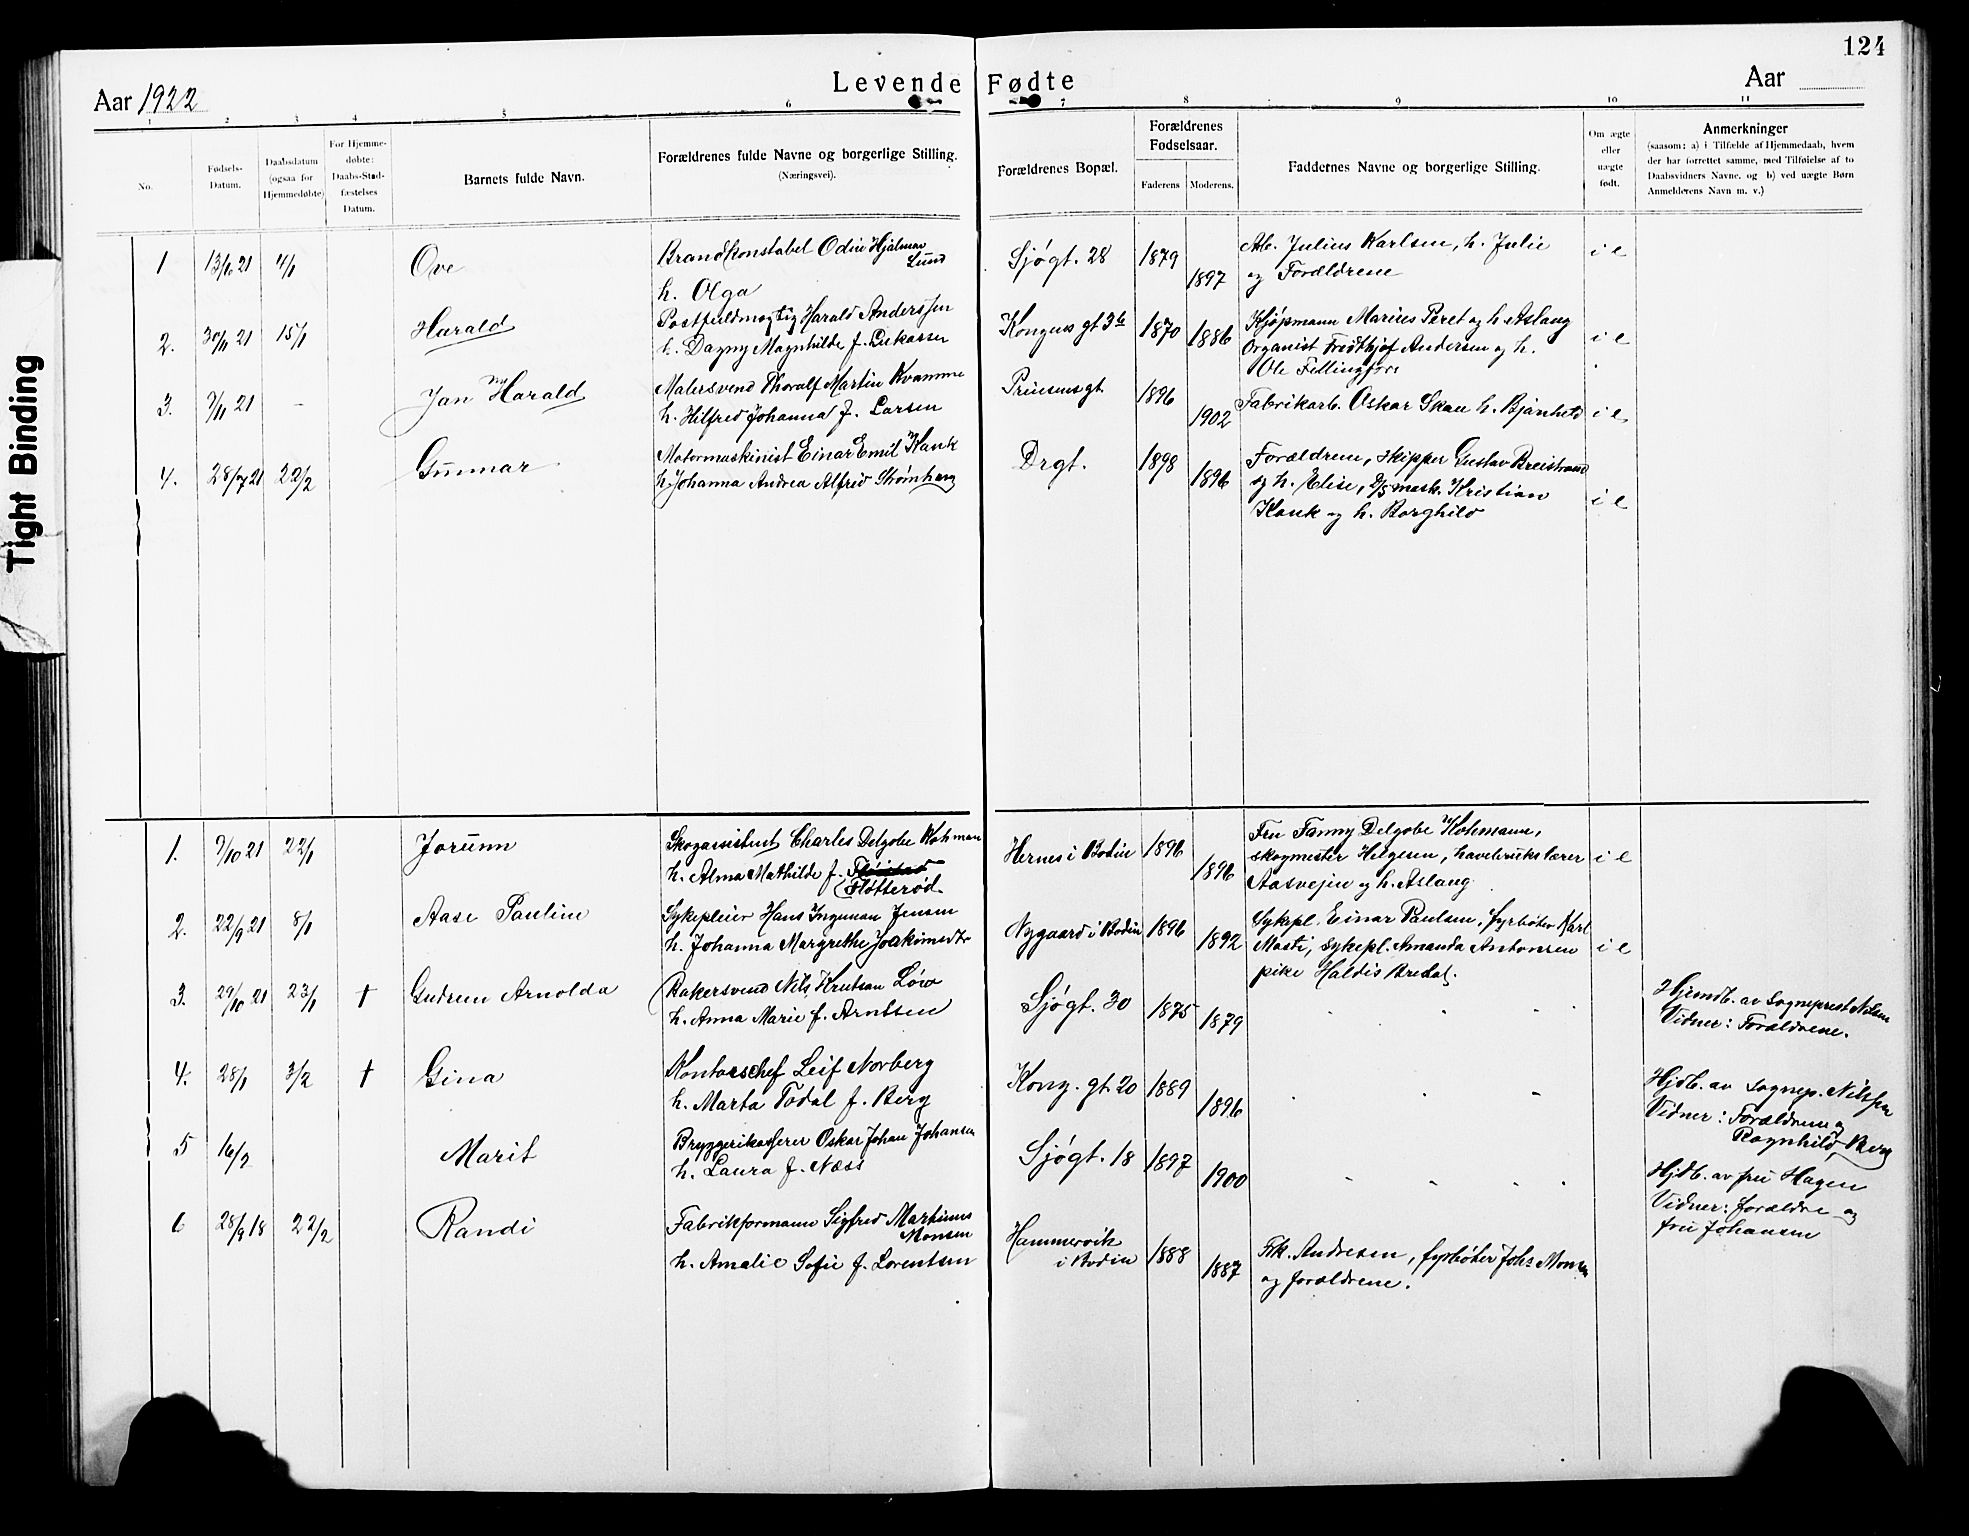 124
Levende Fødte
Aar 1922
Aar
1 2 3 4 5 6 7 8 9 10 11
No.
Fødsels-
Datum.
Daabsdatum
(ogsaa for
Hjemmedøbte)
For Hjemme-
døbte:
Daabs-Stad-
fæstelses
Datum.
Barnets fulde Navn.
Forældrenes fulde Navne og borgerlige Stilling.
(Næringsvei).
Forældrenes Bopæl.
Forældrenes
Fødselsaar.
Faderens Moderens.
Faddernes Navne og borgerlige Stilling.
Om ægte
eller
uægte
født.
Anmerkninger
(saasom: a) i Tilfælde af Hjemmedaab, hvem
der har forrettet samme, med Tilføielse af to
Daabsvidners Navne, og b) ved uægte Børn
Anmelderens Navn m. v.)
1 21 4/1 Ove
Brandkonstabel Odin Hjalmar
Lund
h. Olga
Sjøgt. 28 1879 1897
Arb. Julius Karlsen, h. Julie
og Forældrene
i e
2. 30/11 21 15/1 Harald
Postfuldmægtig Harald Anderssen
h. Dagny Magnhilde f. Lukassen
Kongens gt 1870 1886
Kjøpmann Marius Peret og h. Aslaug
Organist Fredthjof Andersen og h.
Ole
i e
3. 9/11 21 - Jan Harald
Malersvend Thoralf Martin Kvamme
h. Hilfred Johanna f. Larsen
Prinsensgt 1896 1902
Fabrikarb. Oskar Skau h.
i e
4. 21 22/2 Gunnar
Motormaskinist Einar Emil Hauk
h. Johanna Andrea Alfrid
Drgt. 1898 1896
Forældrene, skipper Gustav Breistrand
og h. Elise, D/S mask. Kristian
Hauk og h. Borghild
i e
1. 9/10 21 22/1 Jorunn
Skogassistent Charles Delgobe Kohman
h. Alma Mathilde f.
Fløtterød.
Hernes i Bodin 1896 1896
Fru Fanny Delgobe Kohmann,
skogmester Helgesen, havebrukslærer
Aasvejen og h. Aslaug
i e
2. 22/9 21 8/1 Aase Pauline
Sykepleier Hans Ingeman Jensen
h. Johanna Margrethe Joakimsdtr
Nygaard i Bodin 1896 1892
Sykepl. Einar Paulsen, fyrbøter Karl
Mosti, sykepl. Amanda Antonsen
pike Haldis Bredal.
i e
3. 29/10 21 23/1 † Gudrun Arnolda
Bakersvend Nils Knutsen Löw
h. Anna Marie f. Arntsen
Sjøgt. 30 1875 1879
Hjemdb. av Sogneprest Nilsen
Vidner: Forældrene.
4. 28/1 3/2 † Gina
Kontorschef Leif Norberg
h. Marta Todal f. Berg
Kong. gt. 20 1889 1896
Hjdb. av Sognep. Nilssen
Vidner: Forældrene og
Ragnhild Berg
5 16/2 Marit
Bryggerikasserer Oskar Johan Johansen
h. Laura f. Næss
Sjøgt. 18 1897 1900
Hjdb. av fru Hagen
Vidner: forældre og
fru Johansen
6 28/9 18 22/2 Randi
Fabrikformann Sigfred Martinus
Monsen
h. Amalie Sofie f. Lorentsen
Hammervik
i Bodin
1888 1887
Frk. Andresen, fyrbøter Johs Monsen
og forældrene.
Tight Binding